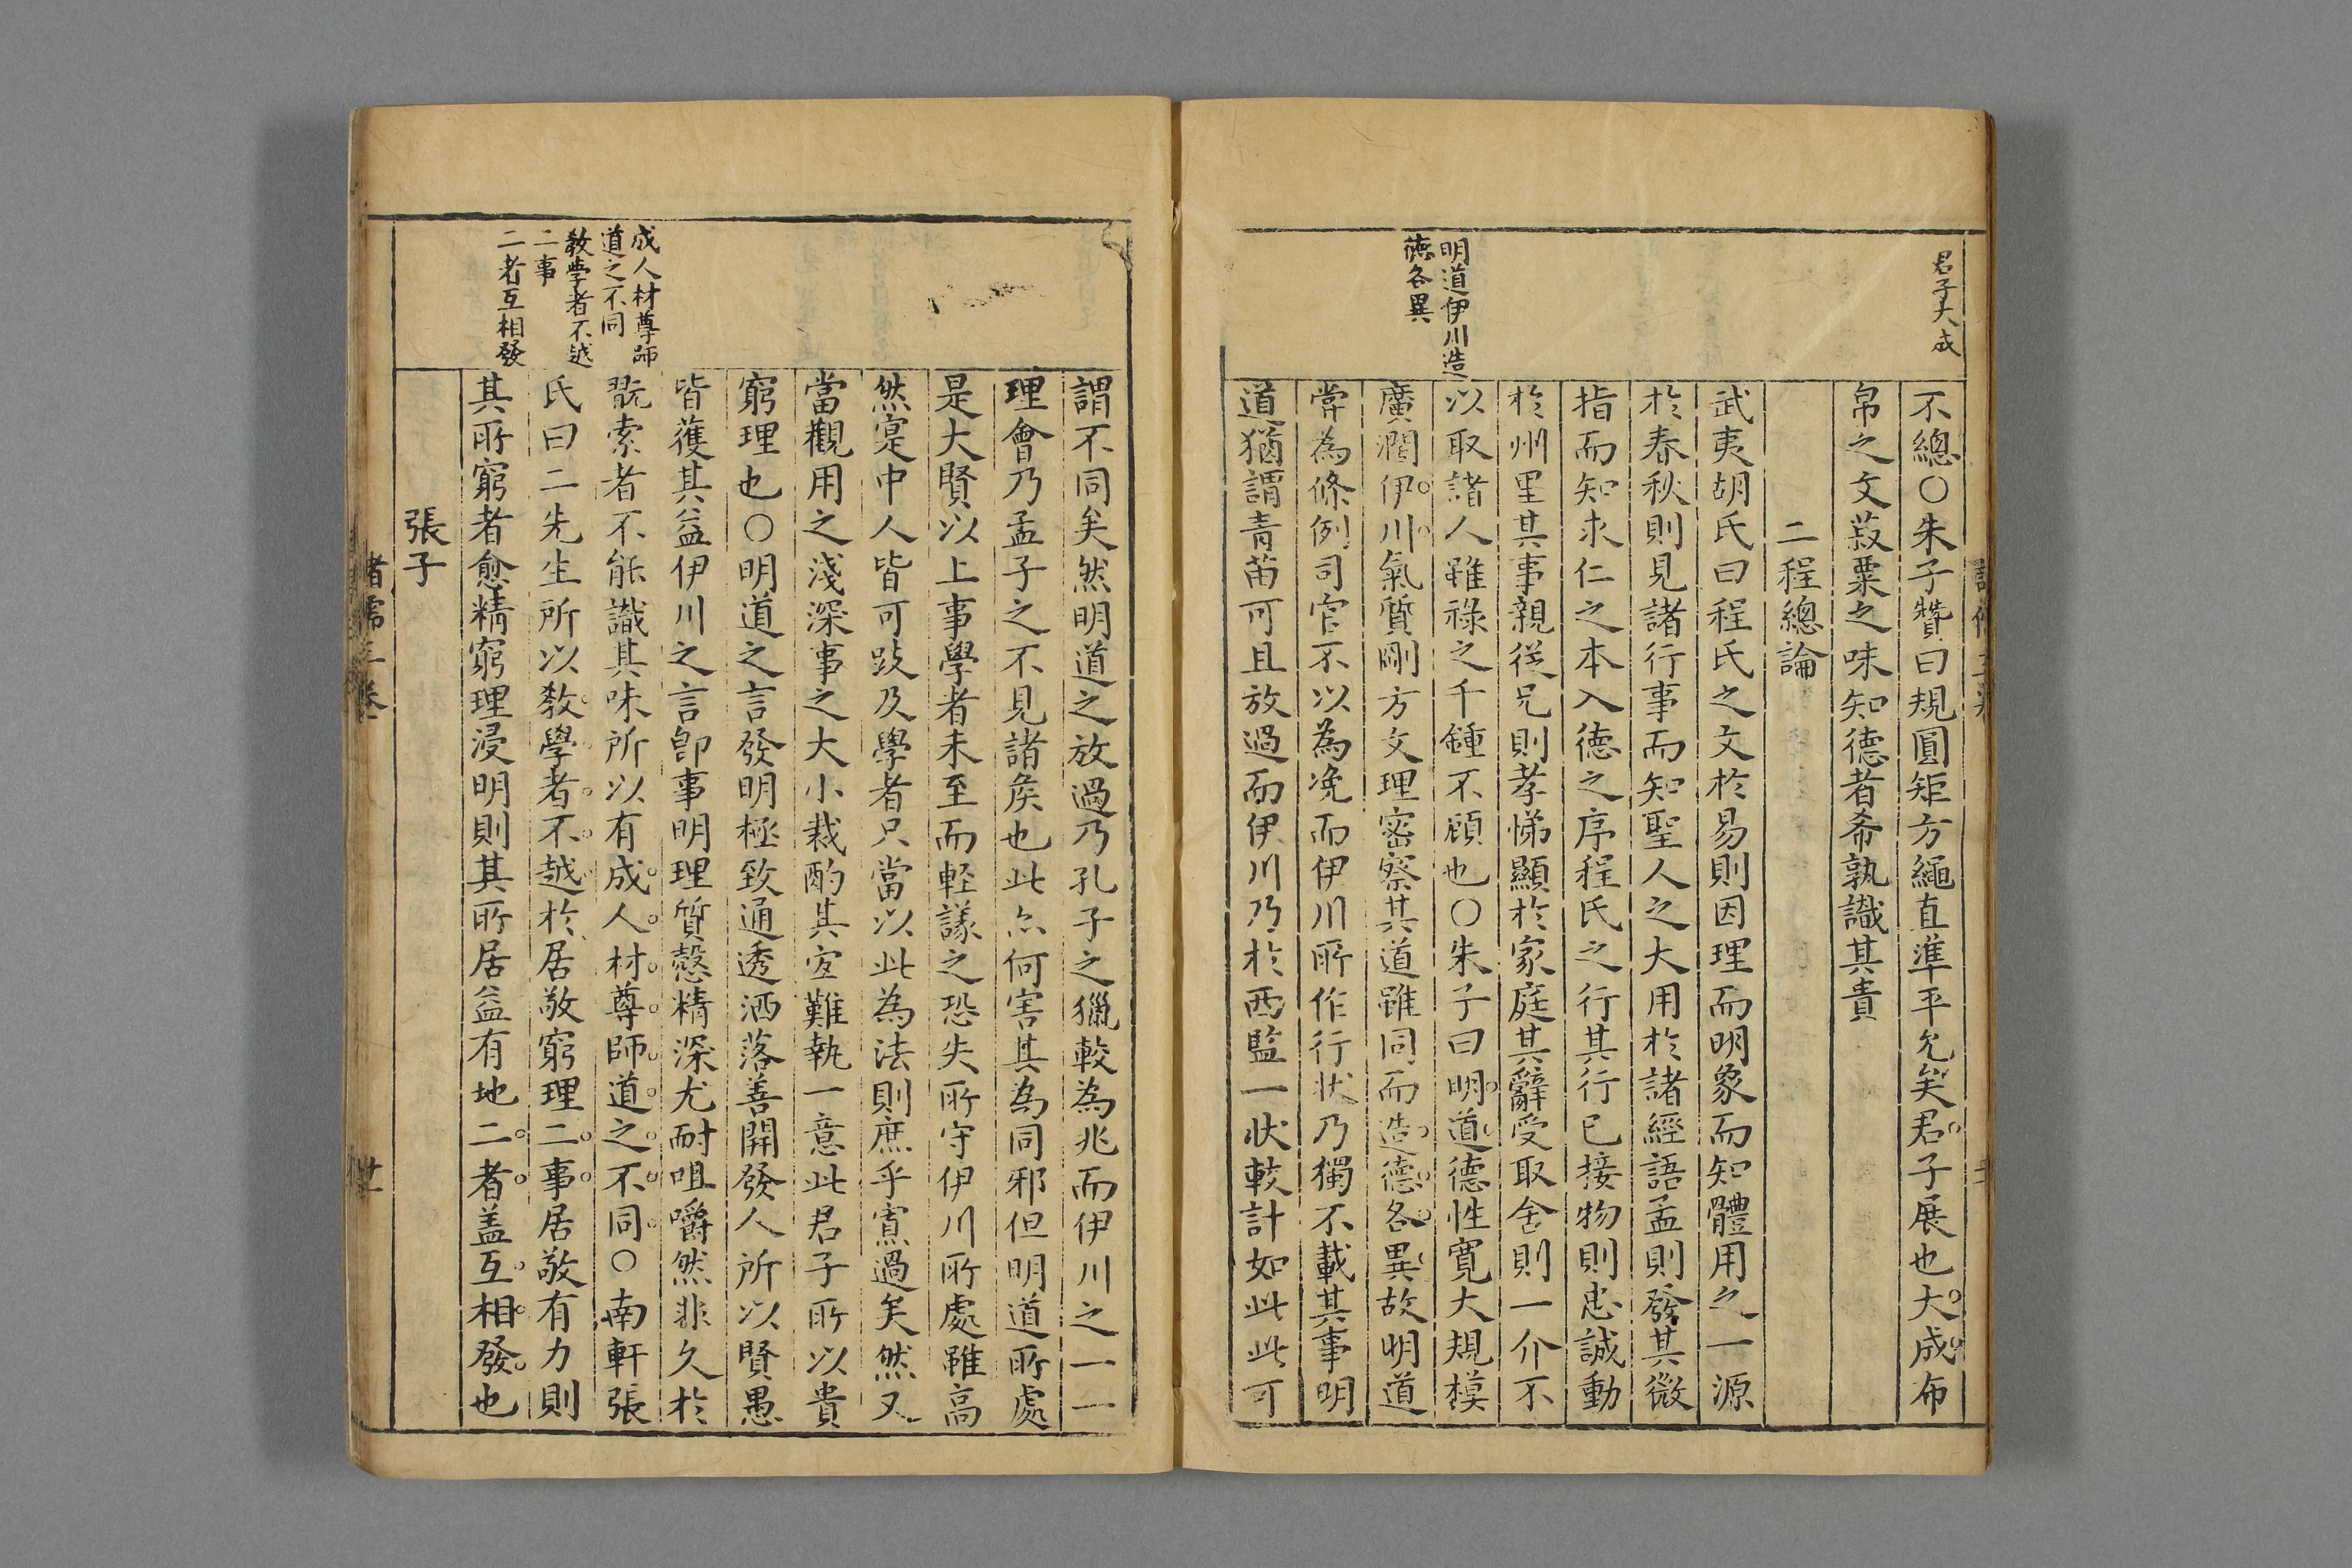 君子大成
不總○朱子贊曰規圓矩方繩直準平允矣君子展也大成布
帛之文菽粟之味知德者希孰識其貴
二程總論
武夷胡氏曰程氏之文於易則因理而明象而知體用之一源
於春秋則見諸行事而知聖人之大用於諸經語孟則發其微
指而知求仁之本入德之序程氏之行其行已接物則忠誠動
於州里其事親從兄則孝悌顯於家庭其辭受取舍則一介不
以取諸人雖祿之千鍾不顧也○朱子曰明道德性寬大規模
廣濶伊川氣質剛方文理密察其道雖同而造德各異故明道
甞為條例司官不以為凂而伊川所作行状乃獨不載其事明
道猶謂青苗可且放過而伊川乃於西監一状較計如此此可
明道伊川造
德各異
謂不同矣然明道之放過乃孔子之獵較為兆而伊川之一一
理會乃孟子之不見諸矦也此亦何害其為同邪但明道所處
是大賢以上事學者未至而輕議之恐失所守伊川所處雖高
然寔中人皆可跂及學者只當以此為法則庶乎寡過矣然又
當觀用之淺深事之大小裁酌其宜難執一意此君子所以貴
窮理也○明道之言發明極致通透洒落善開發人所以賢愚
皆獲其益伊川之言卽事明理質慤精深尤耐咀嚼然非久於
翫索者不能識其味所以有成人材尊師道之不同○南軒張
氏曰二先生所以教學者不越於居敬窮理二事居敬有力則
其所窮者愈精窮理浸明則其所居益有地二者盖互相發也
張子
成人材尊師
道之不同
教學者不越
二事
二者互相發
諸儒三卷